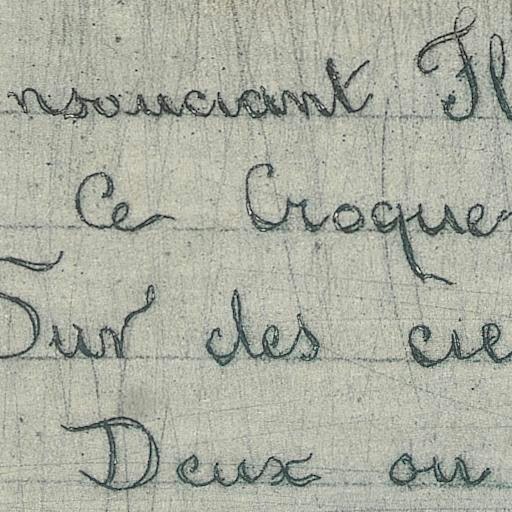 nsouciant Fl
Ce Croque
Sur des cie
Deux ou